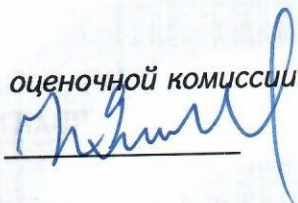 оценочной комиссии